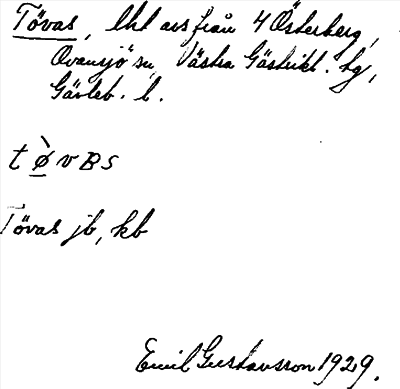 Tövas, lht avs från 4 Österberg,
Ovansjö sn, Västra Gästrikl. tg,
Gävleb. l.
t ø̀ v B s
Tövas jb, kb
Emil Gustavsson 1929.